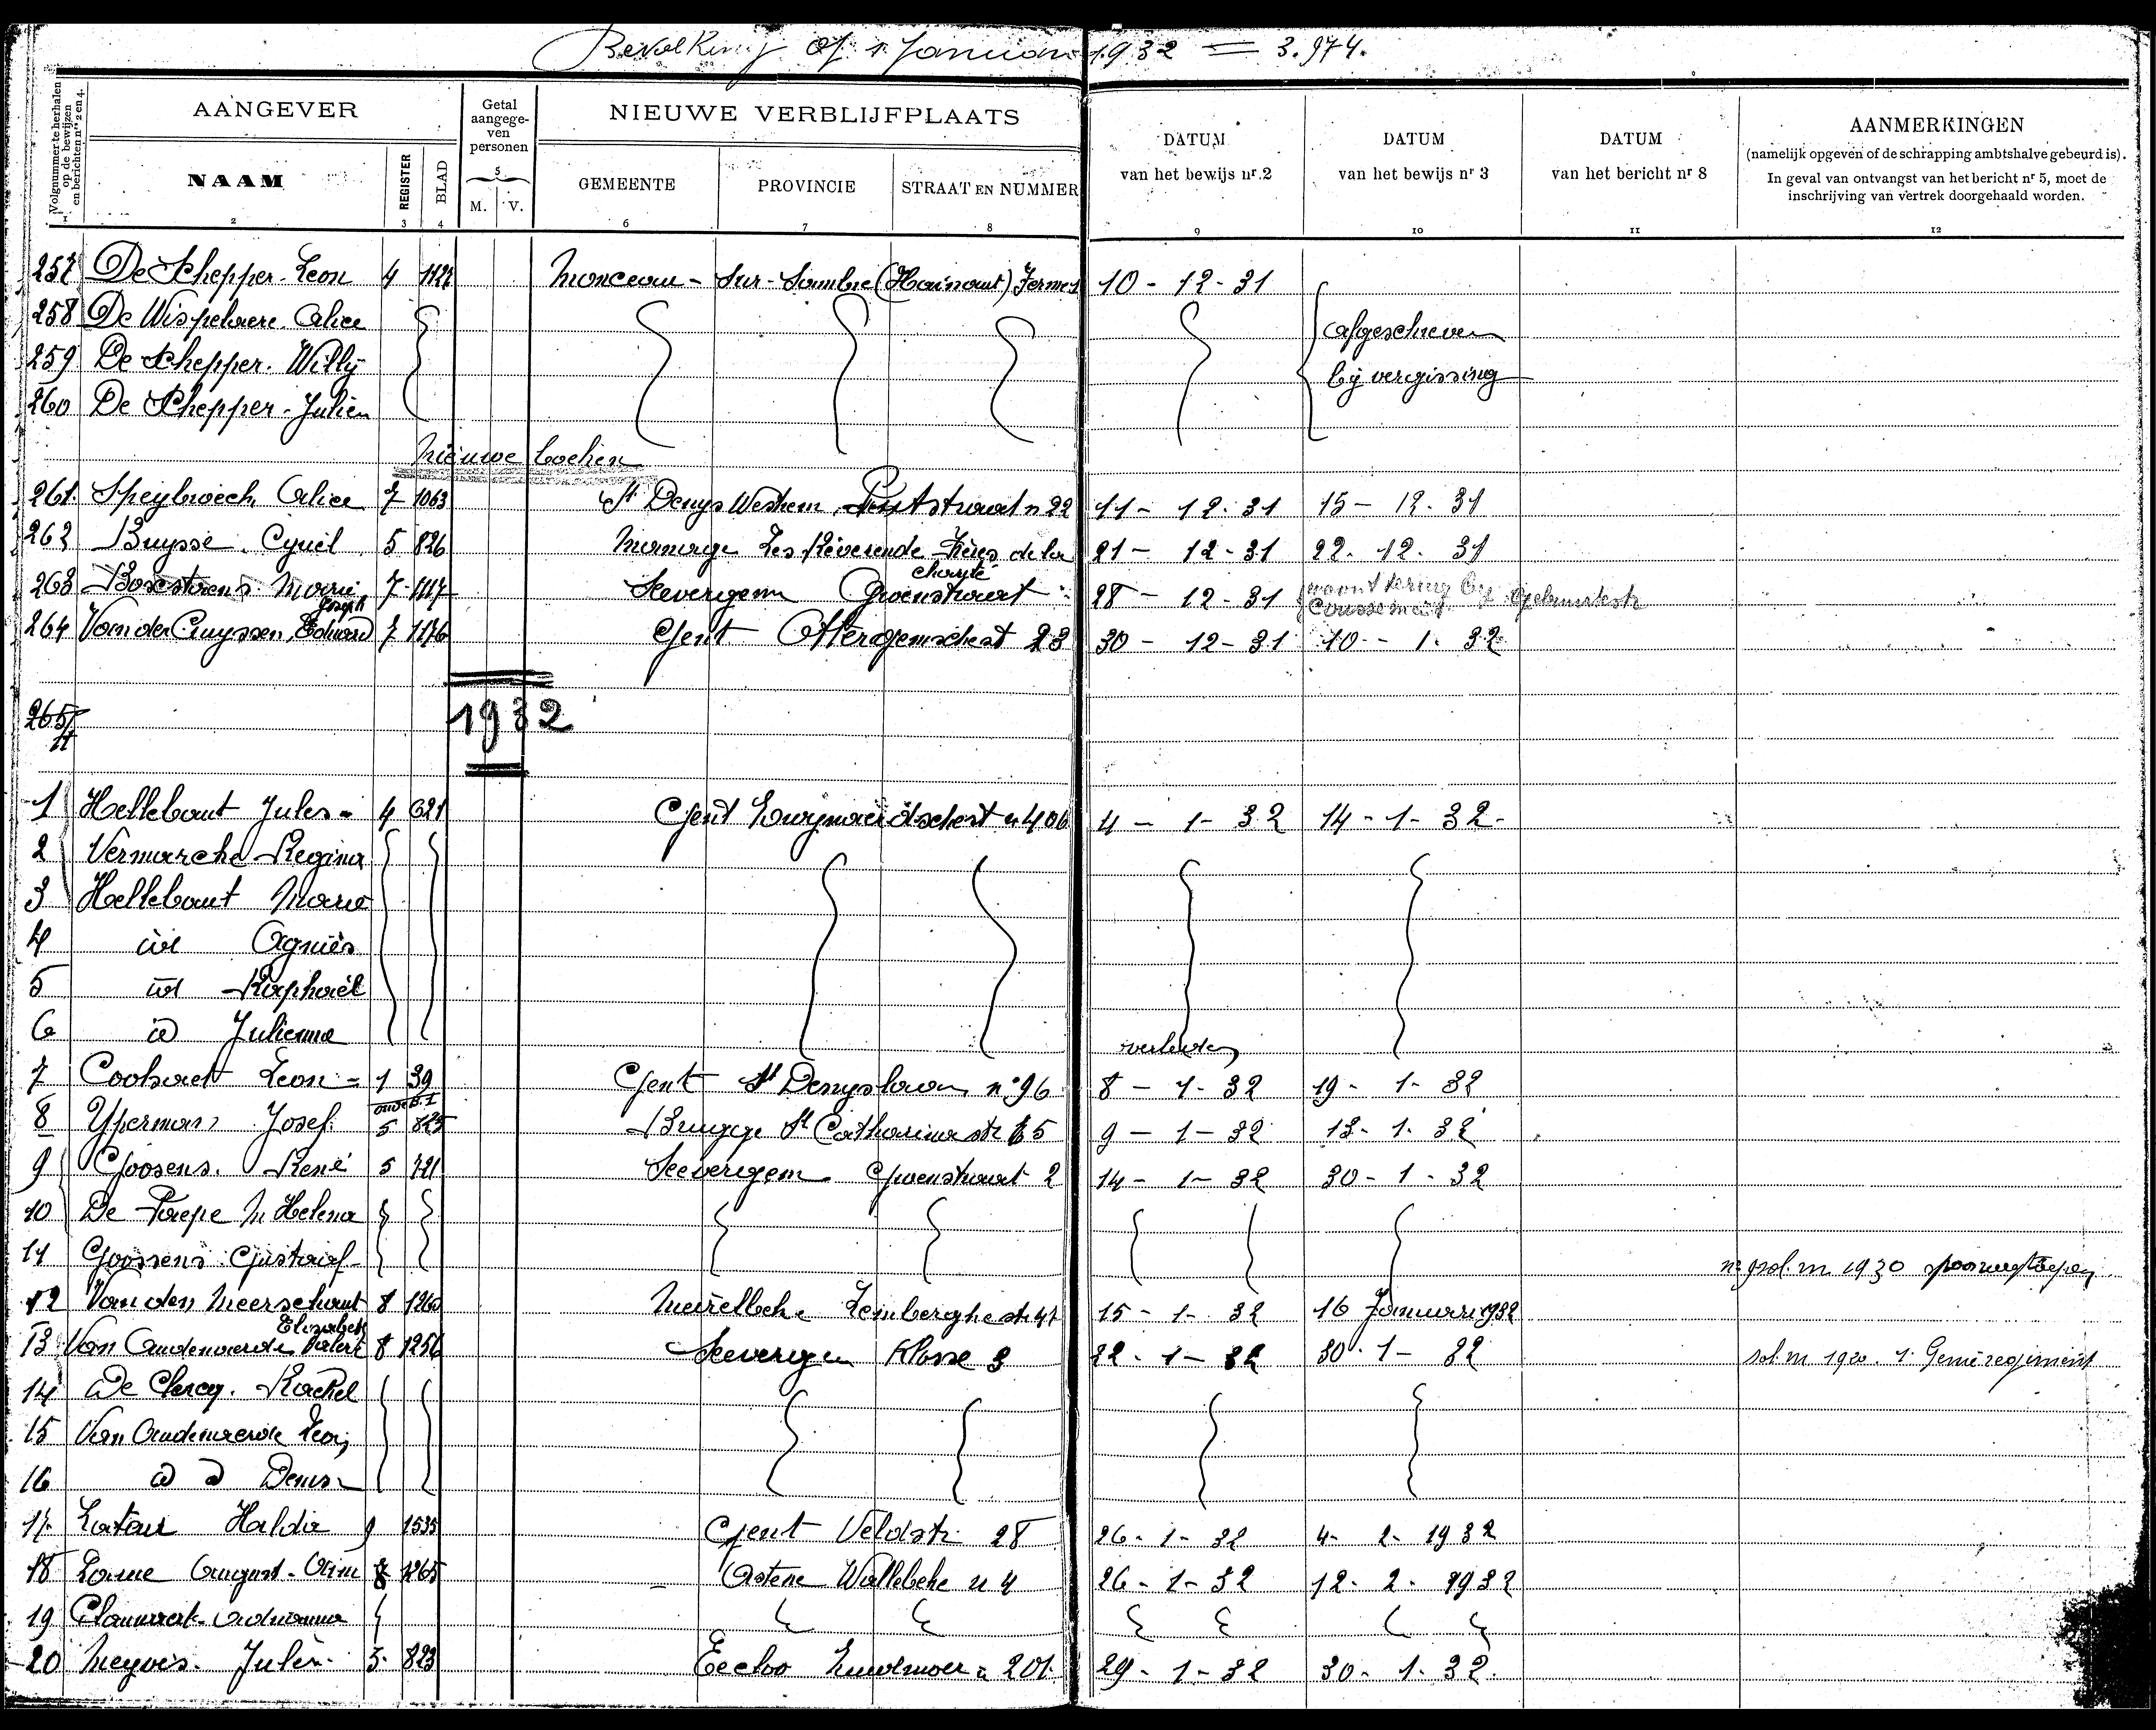 Bevolking op 1 Januari 1932 = 3.974.
Volgnummer te herhalen op de bewijzen en berichten nrs 2 en 4.
AANGEVER
Getal aangegeven personen
NIEUWE VERBLIJFPLAATS
DATUM van het bewijs nr. 2
DATUM van het bewijs nr 3
DATUM van het bericht nr 8
AANMERKINGEN
(namelijk opgeven of de schrapping ambtshalve gebeurd is).
In geval van ontvangst van het bericht nr 5, moet de
inschrijving van vertrek doorgehaald worden.
NAAM REGISTER BLAD 5 M. V. GEMEENTE PROVINCIE STRAAT EN NUMMER
1 2 3 4 6 7 8 9 10 11 12
257 De Schepper Leon 4 Monceau-Sur-Sambre (Hainaut) 10-12-31
258 De Wispelaere Alice afgeschreven
259 De Schepper. Willy bij vergissing
260 De Schepper. Julien
Nieuwe boeken
261. Speybroech Alice 7 1063 St Denys Westrem Poststraat n 22 11-12-31 15-12-31
262 Buysse. Cyriel 5 826 Les Réverende Frères de la charité 21-12-31 22.12.31
263 Marie 7 1117 Severgem Groenstraat 28-12-31
264 Van der Cruyssen, Eduard Joseph 7 1176 Gent Ottergemschest 23 30-12-31 10-1-32
265
1932
1 Hellebaut Jules 4 621 Gent n 406 4-1-32 14-1-32
2 Vermarche Regina
3 Hellebaut Marie
4 id Agnès
5 id Raphaël
6 id Julienna verleden
7 Leon 1 39 Gent St Denyslaan n° 96 8-1-32 19-1-32
8 Yperman Josef. oude B. I 5 825 Brugge St Catharina str 9-1-32 13-1-32
9 Goosens. René 5 721 Seevergem Groenstraat 2 14-1-32 30-1-32
10 De Paepe M Helena
11 Goossens Gustaaf 1930
12 Van den Meerschaut Elisabeth 8 1260 Meirelbeke Lemberghestr 15-1-32 16 Januari 1932
13 Van Oudenaerde Valere 8 1256 Seevergem Klosse 3 22-1-32 30-1-32 sol. m 1920. 1. Genieregiment
14 De Clercq. Rachel
15 Van Oudenaerde Leon
16 id d Denis
17. Lataur Halda 9 1535 Gent Veldstr. 28 26-1-32 4-2-1932
18 Lame August 8 1265 Astene Wallebeke n 4 26-1-32 12-2-1932
19 Adrianna
20 Meyvis. Julien 5. 823 Eecloo n 201 29-1-32 30-1-32.